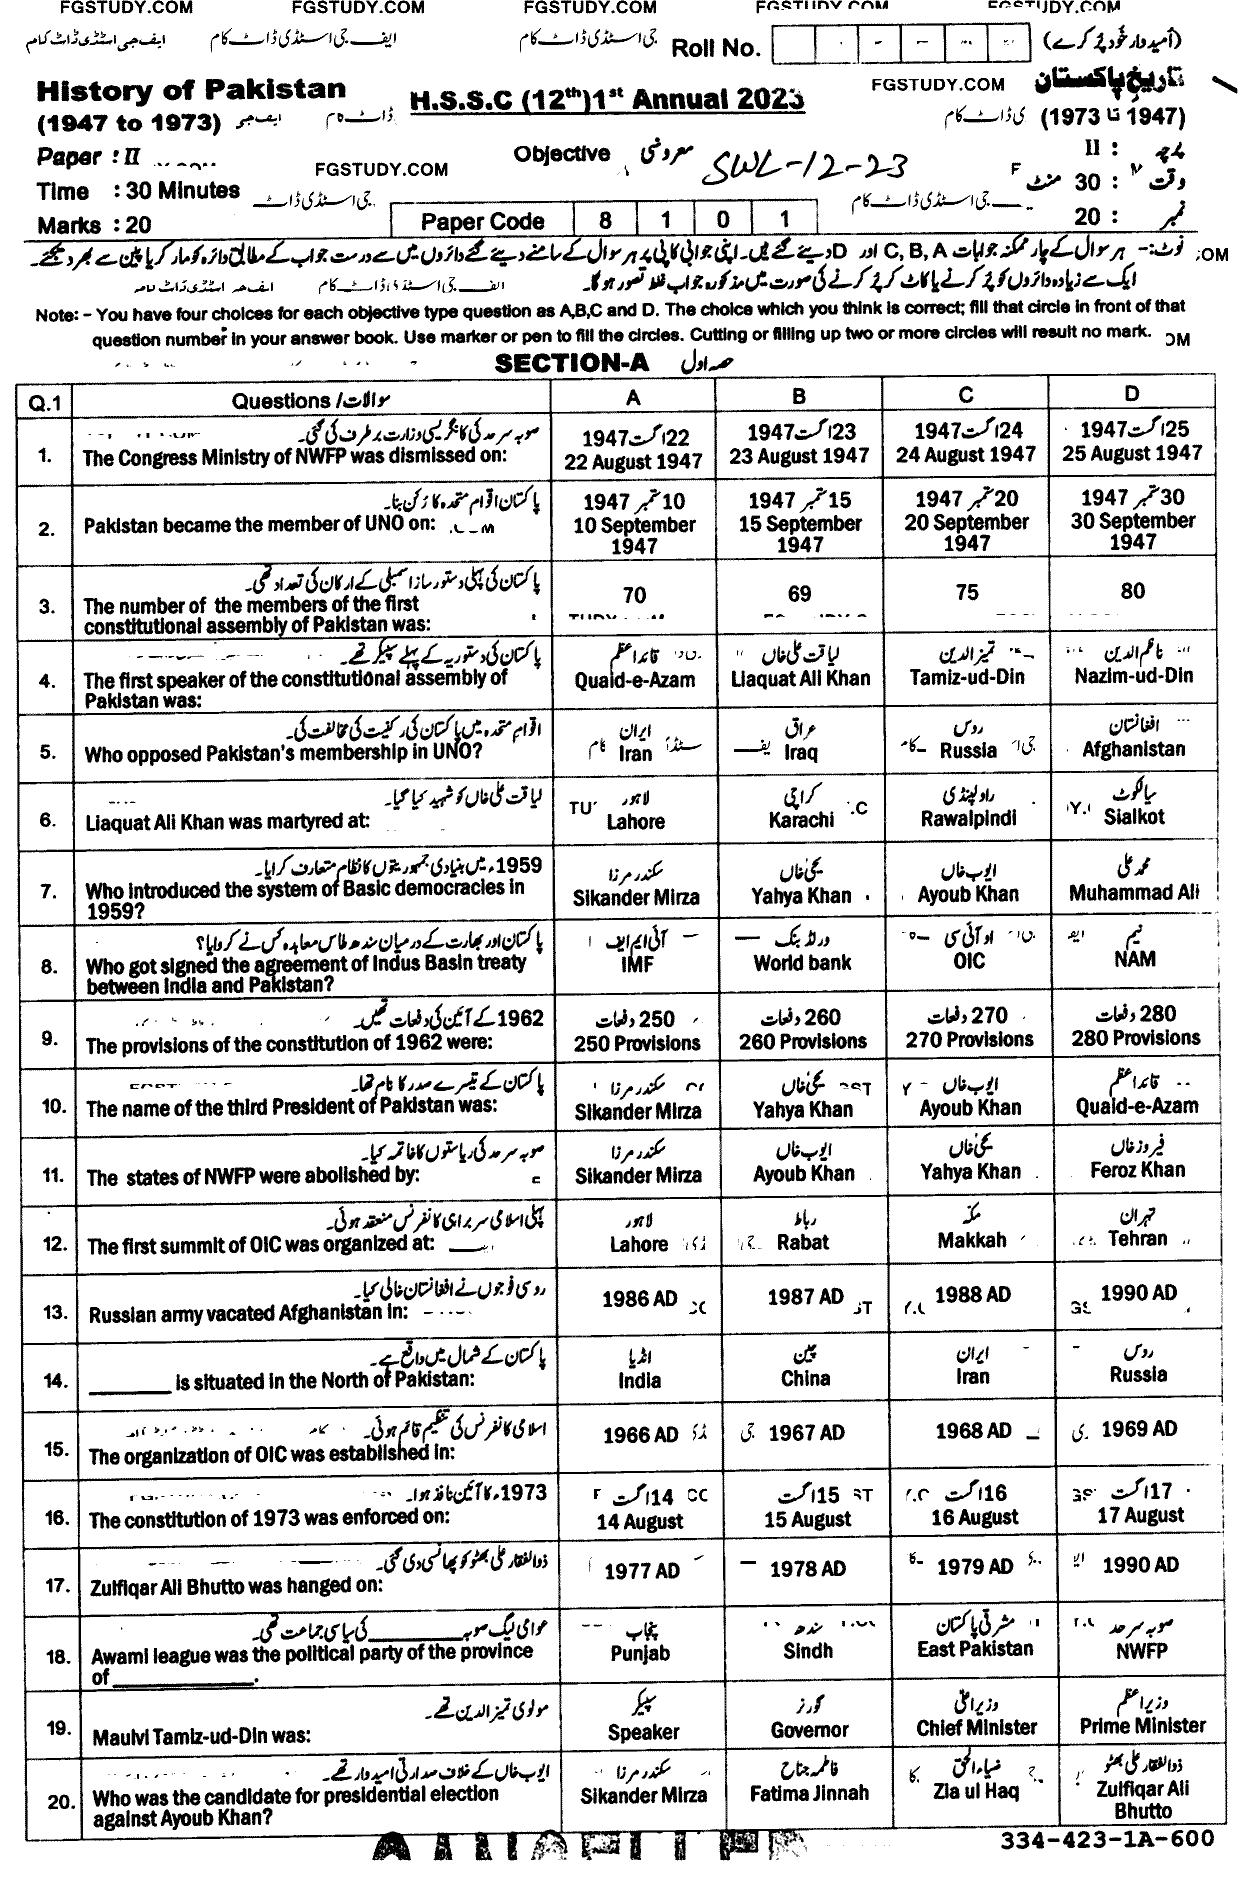 FGSTUDY.COM FGSTUDY.COM FGSTUDY.COM FGSTUDY.COM FGSTUDY.COM
ایف جی اسٹڈی ڈاٹ کام ایف جی اسٹڈی ڈاٹ کام جی اسٹڈی ڈاٹ کام Roll No. (اُمیدوار خُود پُر کرے)
History of Pakistan H.S.S.C (12th) 1st Annual 2023 FGSTUDY.COM تاریخِ پاکستان
(1947 to 1973) ایف جی ڈاٹ کام ی ڈاٹ کام (1947 تا 1973)
Paper : II FGSTUDY.COM Objective معروضی SWL-12-23 پرچہ : II
Time : 30 Minutes جی اسٹڈی ڈاٹ جی اسٹڈی ڈاٹ کام وقت : 30 منٹ
Marks : 20 Paper Code 8 1 0 1 نمبر : 20
نوٹ:- ہر سوال کے چار ممکنہ جوابات C, B, A اور D دیئے گئے ہیں۔ اپنی جوابی کاپی پر ہر سوال کے سامنے دیئے گئے دائروں میں سے درست جواب کے مطابق دائرہ کو مارکر یا پین سے بھر دیجئے۔ OM
ایک سے زیادہ دائروں کو پُر کرنے یا کاٹ کر پُر کرنے کی صورت میں مذکورہ جواب غلط تصور ہو گا۔ ایف جی اسٹڈی ڈاٹ کام
Note: - You have four choices for each objective type question as A,B,C and D. The choice which you think is correct; fill that circle in front of that
question number in your answer book. Use marker or pen to fill the circles. Cutting or filling up two or more circles will result no mark. OM
SECTION-A حصہ اول
Q.1 Questions / سوالات A B C D
صوبہ سرحد کی کانگریسی وزارت برطرف کی گئی۔ 22اگست1947 23اگست1947 24اگست1947 25اگست1947
1. The Congress Ministry of NWFP was dismissed on: 22 August 1947 23 August 1947 24 August 1947 25 August 1947
پاکستان اقوام متحدہ کا رُکن بنا۔ 10 ستمبر 1947 15 ستمبر 1947 20 ستمبر 1947 30 ستمبر 1947
2. Pakistan became the member of UNO on: 10 September 15 September 20 September 30 September
1947 1947 1947 1947
پاکستان کی پہلی دستور ساز اسمبلی کے ارکان کی تعداد تھی۔ 70 69 75 80
3. The number of the members of the first
constitutional assembly of Pakistan was:
پاکستان کی دستوریہ کے پہلے سپیکر تھے۔ قائداعظم لیاقت علی خاں تمیز الدین ناظم الدین
4. The first speaker of the constitutional assembly of Quaid-e-Azam Liaquat Ali Khan Tamiz-ud-Din Nazim-ud-Din
Pakistan was:
اقوامِ متحدہ میں پاکستان کی رکنیت کی مخالفت کی۔ ایران عراق روس افغانستان
5. Who opposed Pakistan's membership in UNO? Iran Iraq Russia Afghanistan
لیاقت علی خاں کو شہید کیا گیا۔ لاہور کراچی راولپنڈی سیالکوٹ
6. Liaquat Ali Khan was martyred at: Lahore Karachi Rawalpindi Sialkot
1959ء میں بنیادی جمہوریتوں کا نظام متعارف کرایا۔ سکندر مرزا یحییٰ خاں ایوب خاں محمد علی
7. Who introduced the system of Basic democracies in Sikander Mirza Yahya Khan Ayoub Khan Muhammad Ali
1959?
پاکستان اور بھارت کے درمیان سندھ طاس معاہدہ کس نے کروایا؟ آئی ایم ایف ورلڈ بنک او آئی سی نیم
8. Who got signed the agreement of Indus Basin treaty IMF World bank OIC NAM
between India and Pakistan?
1962 کے آئین کی دفعات تھیں۔ 250 دفعات 260 دفعات 270 دفعات 280 دفعات
9. The provisions of the constitution of 1962 were: 250 Provisions 260 Provisions 270 Provisions 280 Provisions
پاکستان کے تیسرے صدر کا نام تھا۔ سکندر مرزا یحییٰ خاں ایوب خاں قائداعظم
10. The name of the third President of Pakistan was: Sikander Mirza Yahya Khan Ayoub Khan Quaid-e-Azam
صوبہ سرحد کی ریاستوں کا خاتمہ کیا۔ سکندر مرزا ایوب خاں یحییٰ خاں فیروز خاں
11. The states of NWFP were abolished by: Sikander Mirza Ayoub Khan Yahya Khan Feroz Khan
پہلی اسلامی سربراہی کانفرنس منعقد ہوئی۔ لاہور رباط مکہ تہران
12. The first summit of OIC was organized at: Lahore Rabat Makkah Tehran
روسی فوجوں نے افغانستان خالی کیا۔ 1986 AD 1987 AD 1988 AD 1990 AD
13. Russian army vacated Afghanistan in:
پاکستان کے شمال میں واقع ہے۔ انڈیا چین ایران روس
14. ________ is situated in the North of Pakistan: India China Iran Russia
اسلامی کانفرنس کی تنظیم قائم ہوئی۔ 1966 AD 1967 AD 1968 AD 1969 AD
15. The organization of OIC was established in:
1973ء کا آئین نافذ ہوا۔ 14اگست 15اگست 16اگست 17اگست
16. The constitution of 1973 was enforced on: 14 August 15 August 16 August 17 August
ذوالفقار علی بھٹو کو پھانسی دی گئی۔ 1977 AD 1978 AD 1979 AD 1990 AD
17. Zulfiqar Ali Bhutto was hanged on:
عوامی لیگ صوبہ ________ کی سیاسی جماعت تھی۔ پنجاب سندھ مشرقی پاکستان صوبہ سرحد
18. Awami league was the political party of the province Punjab Sindh East Pakistan NWFP
of ______________.
مولوی تمیز الدین تھے۔ سپیکر گورنر وزیراعلیٰ وزیراعظم
19. Maulvi Tamiz-ud-Din was: Speaker Governor Chief Minister Prime Minister
ایوب خاں کے خلاف صدارتی امیدوار تھے۔ سکندر مرزا فاطمہ جناح ضیاء الحق ذوالفقار علی بھٹو
20. Who was the candidate for presidential election Sikander Mirza Fatima Jinnah Zia ul Haq Zulfiqar Ali
against Ayoub Khan? Bhutto
334-423-1A-600